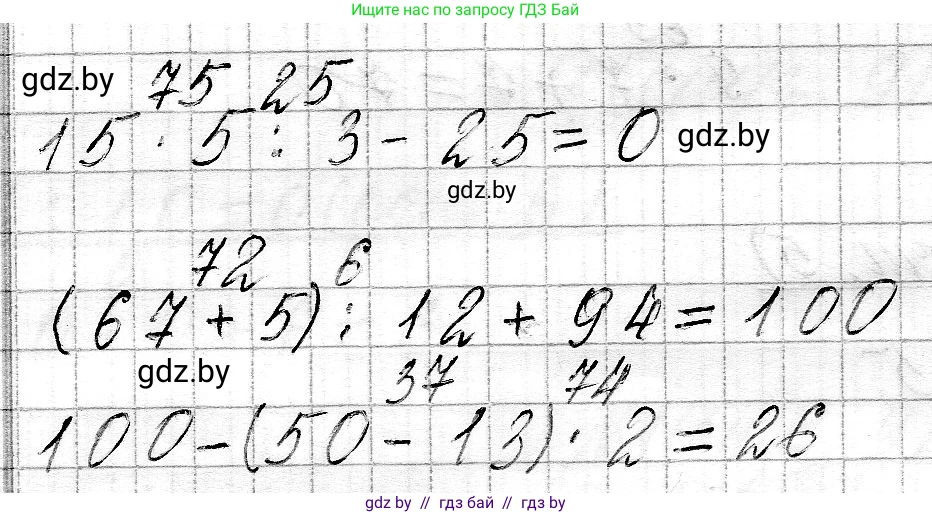 Ищите нас по запросу ГДЗ Бай
gdz.by 75 25
15 · 5 : 3 - 25 = 0 gdz.by
gdz.by
72 6
(67 + 5) : 12 + 94 = 100
gdz.by 37 74
100 - (50 - 13) · 2 = 26
gdz.by // гдз бай // gdz.by